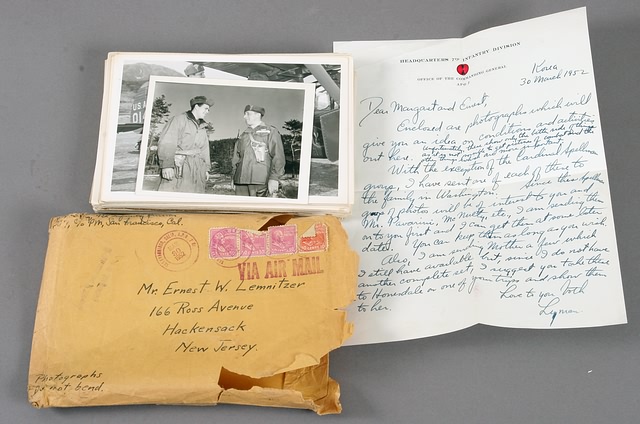 USA
HEADQUARTERS 7TH INFANTRY DIVISION
OFFICE OF THE COMMANDING GENERAL
Korea
30 March 1952
Dear Margaret and Ernest,
Enclosed are photographs which will
give you an idea on conditions and activities
out here.
With the exception of the Cardinal Spellman
group, I have sent one of each of them to
the family in Washington. Since these
group of photos will be of interest to you and
Mr. McNulty, etc, I am sending them
on to you first and I can get them at some later
date. You can keep them as long as you wish.
Also, I am sending Mother a few which
I still have available but, since I do not have
another complete set, I suggest you take these
to Honesdale on one of your trips and show them
to her.
Love to you both
Lyman
% P.M., San Francisco, Cal.
VIA AIR MAIL
Mr. Ernest W. Lemnitzer
166 Ross Avenue
Hackensack
New Jersey.
Photographs
Do not bend.